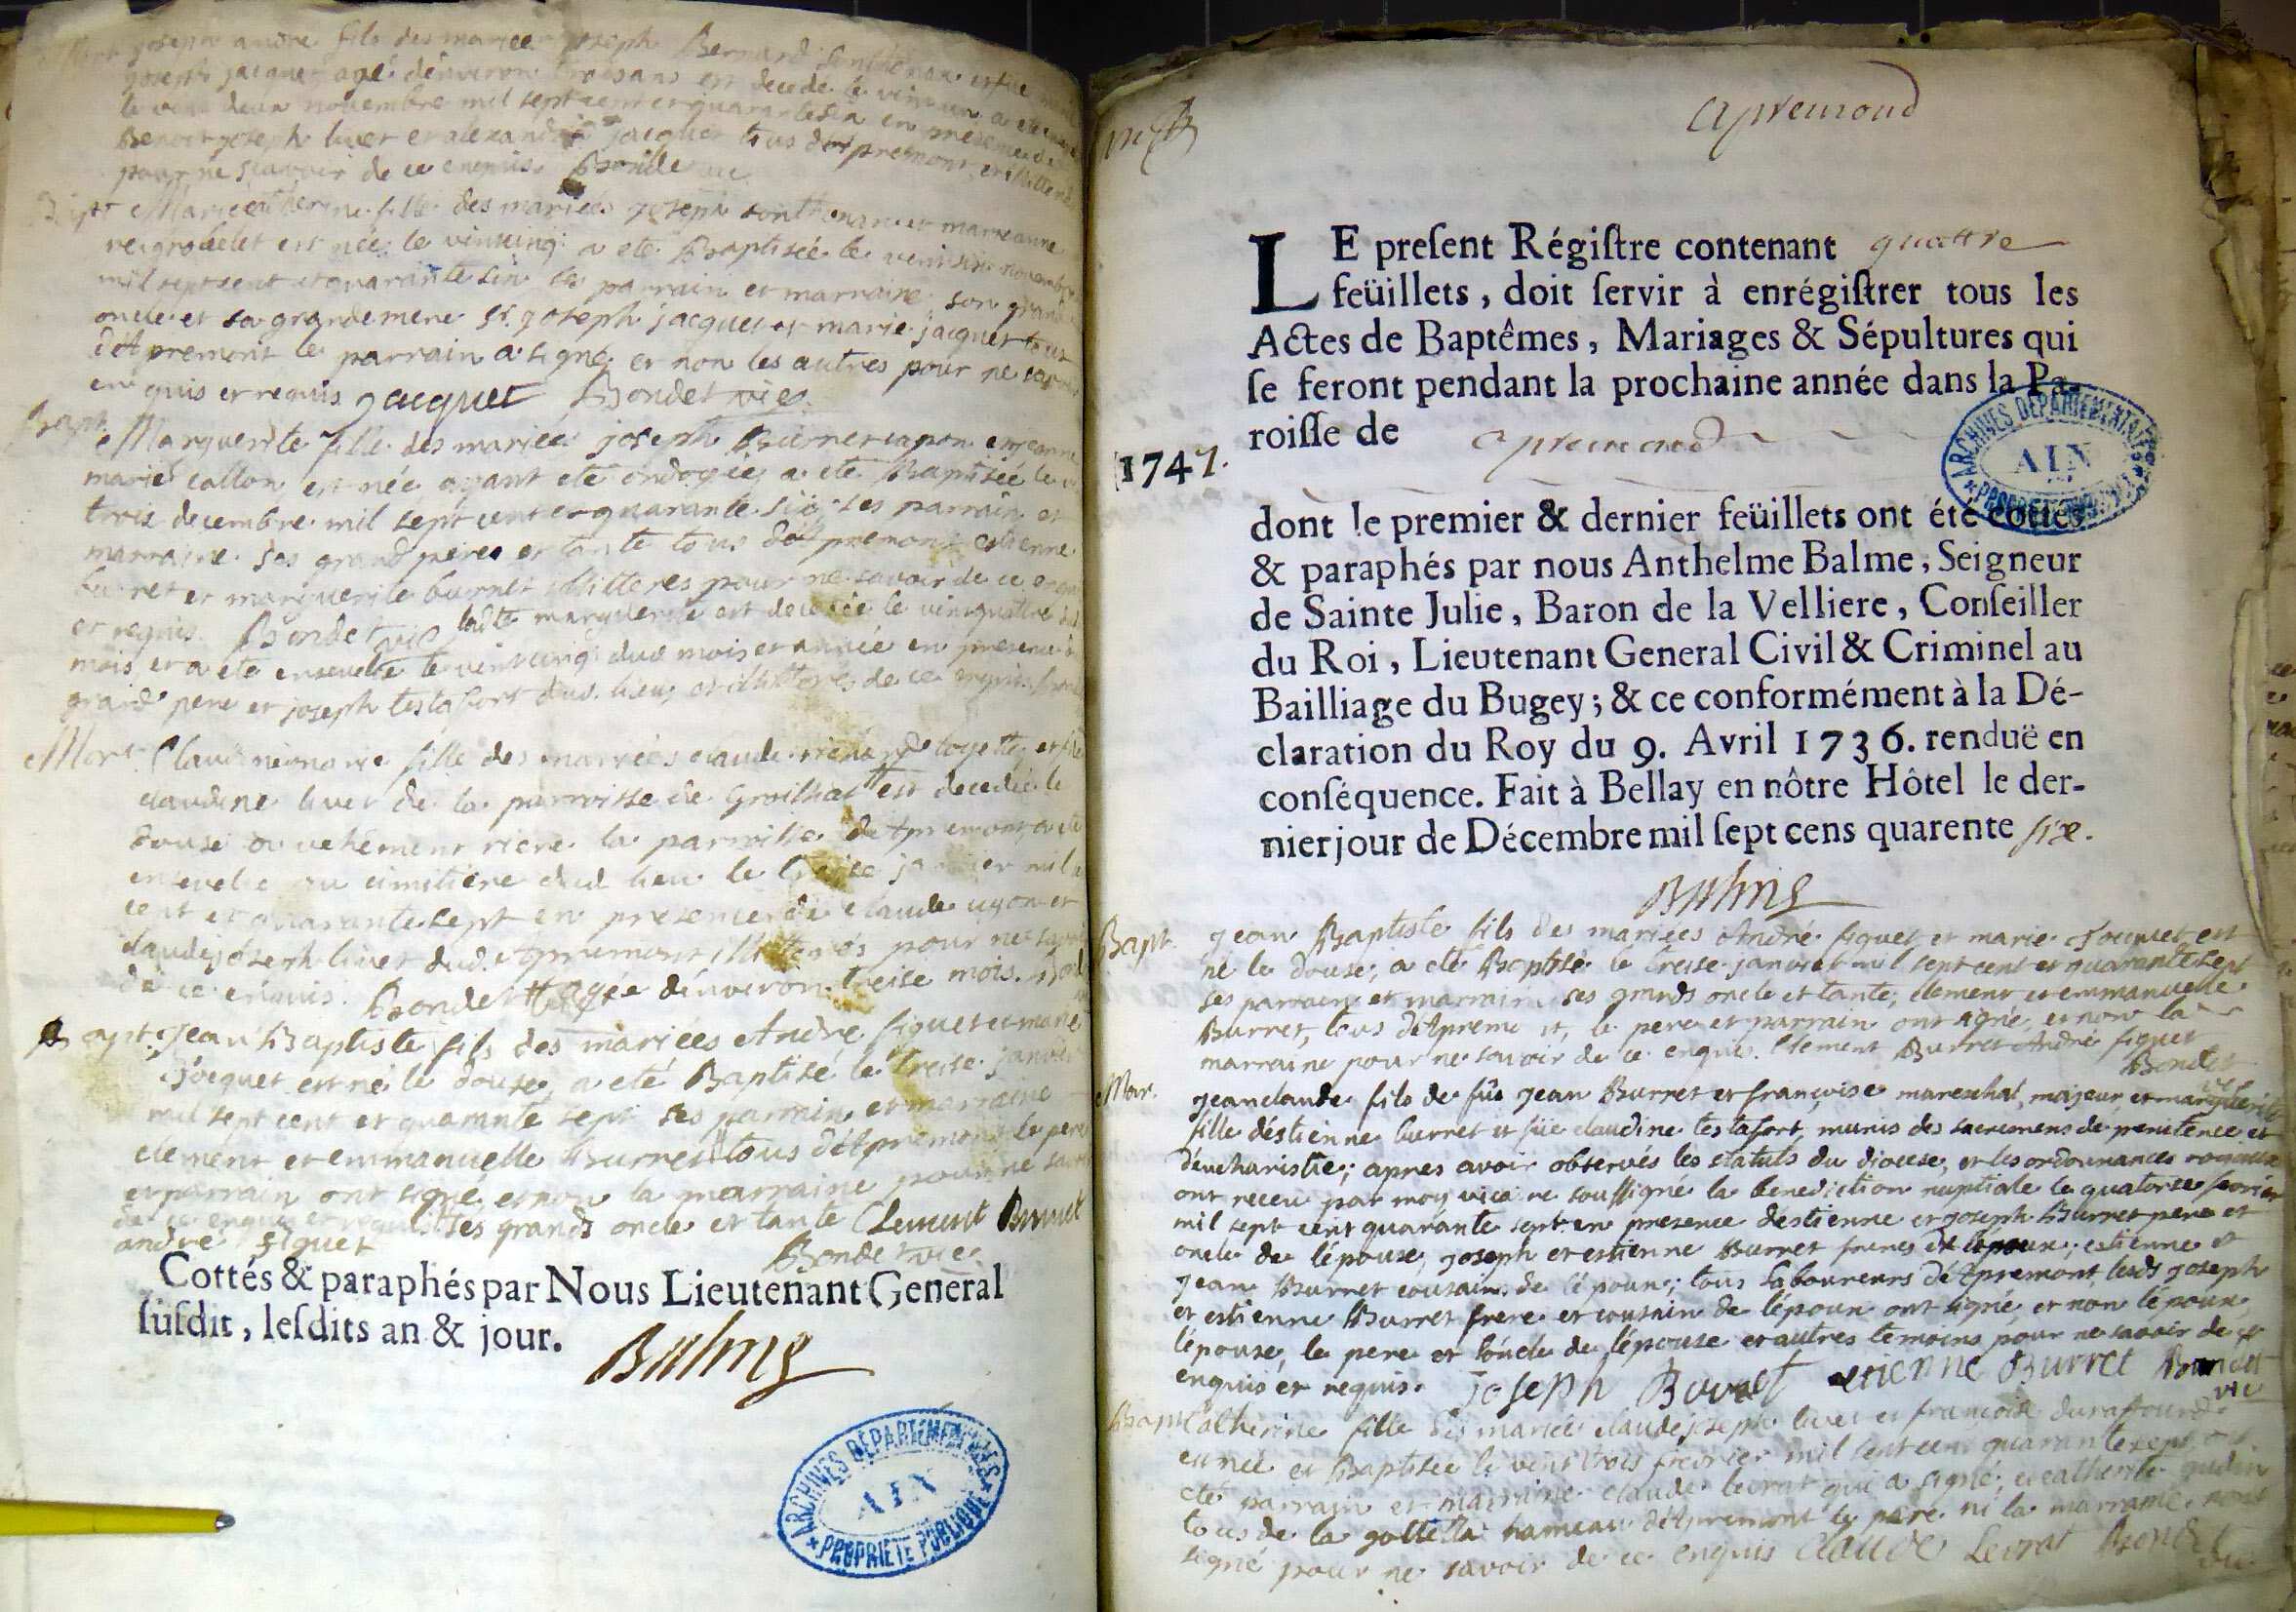 joseph andre fils des mariées joseph Bernard
joseph jacquet agé dénviron trois ans est decedé le vint un a eté
le vint deux novembre mil sept cent et quarante six en presence de
Benoit joseph livet et alexandre jacquet tous dApremont, et illitterés
pour ne scavoir de ce enquis. Bondet vic
Bapt Marie catherine fille des mariées joseph et marie anne
est née le vint cinq a eté Baptisée le vint six novembre
mil sept sent et quarante six ses parrain et marraine son grand
oncle et sa grandemere Sr. joseph jacquet et marie jacquet tous
dApremont le parrain a signé et non les autres pour ne savoir
enquis et requis jacquet Bondet vic
Bapt
Marguerite fille des mariées joseph Burret et jeanne
marie callon est née ayant eté ondoyée a eté Baptisée le
trois decembre mil sept cent et quarante six ses parrain et
marraine ses grand peres et tante tous dApremont estienne
burret et marguerite burret illitteres pour ne savoir de ce enquis
et requis. Bondet vic ladite marguerite est decedée le vint quattre dud
mois et a eté ensevelie le vint cinq dud mois et année en presence du
grand pere et joseph testafort dud. lieu, et illitterés de ce enquis
Mort Claudine marie fille des mariées claude et
claudine livet de la parroisse de Groissiat est decedée le
douse la parroisse dApremont a eté
ensevelie au cimitiere dud lieu le treise janvier mil
cent et quarante sept en presence de claude ugon et
claude joseph livet dud. Apremont illitterés pour ne savoir
de ce enquis. Bondet agée dénviron treise mois.
Bapt. Jean Baptiste fils des mariées André figuet et marie
jocquet est né le douse, a eté Baptisé le treise janvier
mil sept cent et quarante sept ses parrain et marraine
clement et emmanuelle Burret tous dApremont le pere
et parrain ont signé et non la marraine pour ne savoir
de ce enquis et requis ses grands oncle et tante Clement Burret
andré figuet Bondet vic
Cottés & paraphés par Nous Lieutenant General
susdit, lesdits an & jour.
Balme
ARCHIVES DÉPARTEMENTALES
AIN
PROPRIÉTÉ PUBLIQUE
apremond
LE present Régistre contenant quattre
feüillets, doit servir à enrégistrer tous les
Actes de Baptêmes, Mariages & Sépultures qui
se feront pendant la prochaine année dans la Pa-
roisse de apremond
1747.
ARCHIVES DÉPARTEMENTALES
AIN
PROPRIÉTÉ PUBLIQUE
dont le premier & dernier feüillets ont été cottés
& paraphés par nous Anthelme Balme, Seigneur
de Sainte Julie, Baron de la Velliere, Conseiller
du Roi, Lieutenant General Civil & Criminel au
Bailliage du Bugey; & ce conformément à la Dé-
claration du Roy du 9. Avril 1736. renduë en
conséquence. Fait à Bellay en nôtre Hôtel le der-
nier jour de Décembre mil sept cens quarente six.
Balme
Bapt. jean Baptiste fils des mariées André figuet et marie Jocquet est
né le douse, a eté Baptisé le treise janvier mil sept cent et quarante sept
ses parrain et marraine ses grands oncle et tante, clement et emmanuelle
Burret, tous dApremont, le pere et parrain ont signé, et non la
marraine pour ne savoir de ce enquis. Clement Burret André figuet
Bondet vic
Mar. jean claude fils de fûs jean Burret et françoise mareschal, majeur, et marguerite
fille déstienne burret et füe claudine testafort, munis des sacremens de penitence et
déucharistie; apres avoir observés les statuts du diocese, et les ordonnances royaux
ont receu par moy vicaire soussigné la benediction nuptiale le quatorse fevrier
mil sept cent quarante sept en presence déstienne et joseph Burret pere et
oncle de lépouse, joseph et estienne Burret freres de lépoux; estienne et
jean Burret cousins de lépoux; tous laboureurs dApremont, lesds joseph
et estienne Burret frere et cousin de lépoux ont signé, et non lépoux,
lépouse, le pere et lóncle de lépouse et autres temoins pour ne savoir de ce
enquis et requis. joseph Burret etienne Burret Bondet
vic
Bapt Catherine fille des mariées claude joseph livet et françoise duraffourd
est née et Baptisée le vint trois fevrier mil sept cent quarante sept a
eté parrain et marraine claude levrat qui a signé, et catherine
tous de la hameau dApremont le pere ni la marraine nont
signé pour ne savoir de ce enquis Claude Levrat Bondet
vic